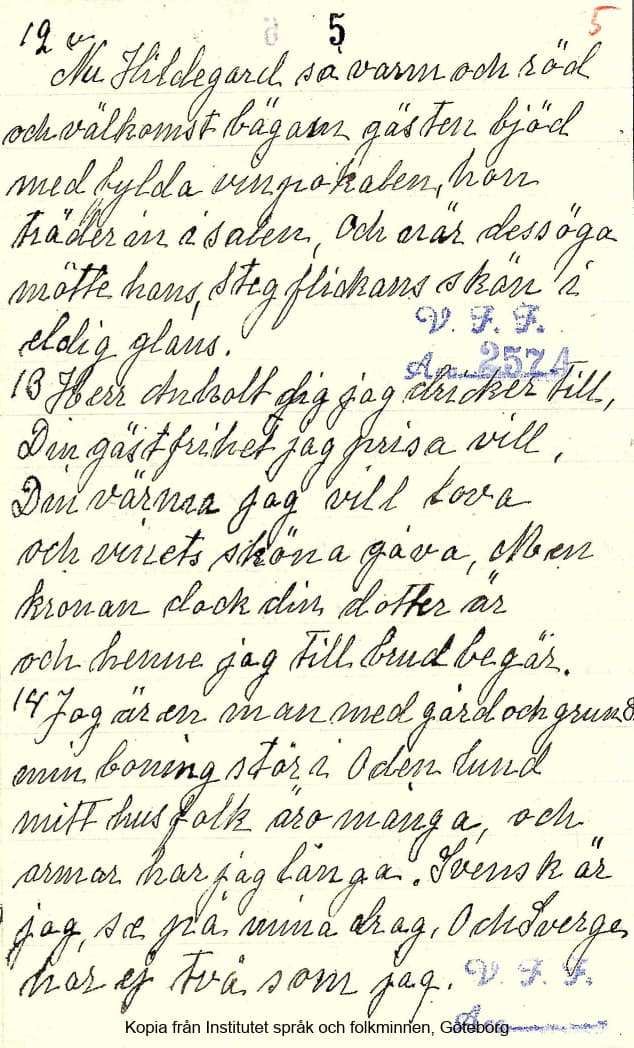 5
5
12 v
Nu Hildegard så varm och röd
och välkomst bägarn gästen bjöd
med fylda vinpokalen, hon
träder in i salen, Och när dess öga
mötte hans, Steg flickans skön i
eldig glans.
V. F. F.
Acc 2574
13 Herr Anholt dig jag dricker till,
Din gästfrihet jag prisa vill,
Din värma jag vill lova
och vinets sköna gåva, Men
kronan dock din dotter är
och henne jag till brud begär.
14 Jag är en man med gård och grund
min boning stör i Oden lund
mitt husfolk äro många, och
armar har jag långa. Svensk är
jag, se på mina drag, Och Sverge
har ej två som jag.
V. F. F.
Kopia från Institutet språk och folkminnen, Göteborg